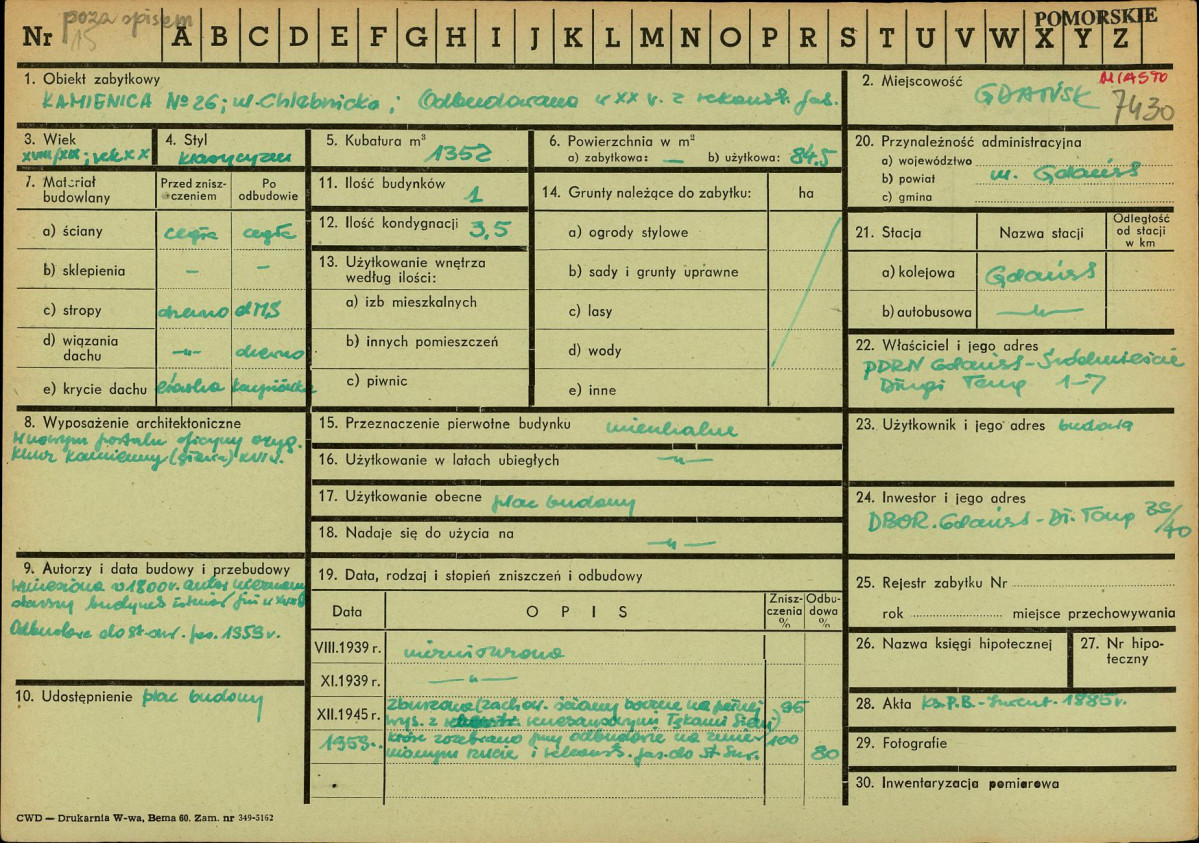 poza opisem
15
POMORSKIE
Nr A B C D E F G H I J K L M N O P R S T U V W X Y Z
1. Obiekt zabytkowy
KAMIENICA No 26; ul. Chlebnicka; Odbudowana w XX w. z rekonstr. fas.
2. Miejscowość
MIASTO
GDAŃSK
7430
3. Wiek
XVIII/XIX; wiek XX
4. Styl
klasycyzm
5. Kubatura m³ 1352
6. Powierzchnia w m²
a) zabytkowa: — b) użytkowa: 84.5
7. Materiał budowlany
Przed zniszczeniem
Po odbudowie
a) ściany cegła cegła
b) sklepienia — —
c) stropy drewno DMS
d) wiązania dachu —"— drewno
e) krycie dachu karpiówka
8. Wyposażenie architektoniczne
W nowym portalu oficyny oryg.
klucz kamienny (głowa) XVI w.
9. Autorzy i data budowy i przebudowy
wzniesiona ok 1800 r. autor nieznany
starszy budynek istniał już w
Odbudowa do st. sur. fas. 1953 r.
10. Udostępnienie plac budowy
11. Ilość budynków 1
12. Ilość kondygnacji 3,5
13. Użytkowanie wnętrza według ilości:
a) izb mieszkalnych
b) innych pomieszczeń
c) piwnic
14. Grunty należące do zabytku: ha
a) ogrody stylowe
b) sady i grunty uprawne
c) lasy
d) wody
e) inne
15. Przeznaczenie pierwotne budynku mieszkalne
16. Użytkowanie w latach ubiegłych —"—
17. Użytkowanie obecne plac budowy
18. Nadaje się do użycia na —"—
19. Data, rodzaj i stopień zniszczeń i odbudowy
Data
OPIS
Zniszczenia %
Odbudowa %
VIII.1939 r. nieruiszona
XI.1939 r. —"—
XII.1945 r. zburzona (zachow. ściany boczne na pełnej 95
wys. z renesansowymi łękami sieni)
1953. które rozebrano przy odbudowie na zmie- 100
nionym rzucie i rekonstr. fas. do st. sur. 80
20. Przynależność administracyjna
a) województwo
b) powiat m. Gdańsk
c) gmina
21. Stacja
Nazwa stacji
Odległość od stacji w km
a) kolejowa Gdańsk
b) autobusowa —"—
22. Właściciel i jego adres
PDRN Gdańsk-Śródmieście
Długi Targ 1-7
23. Użytkownik i jego adres budowa
24. Inwestor i jego adres
DBOR. Gdańsk - Dł. Targ 39/40
25. Rejestr zabytku Nr
rok miejsce przechowywania
26. Nazwa księgi hipotecznej
27. Nr hipoteczny
28. Akta Ks. P.B. - Inwent. 1885 r.
29. Fotografie
30. Inwentaryzacja pomiarowa
CWD — Drukarnia W-wa, Bema 60. Zam. nr 349-5162